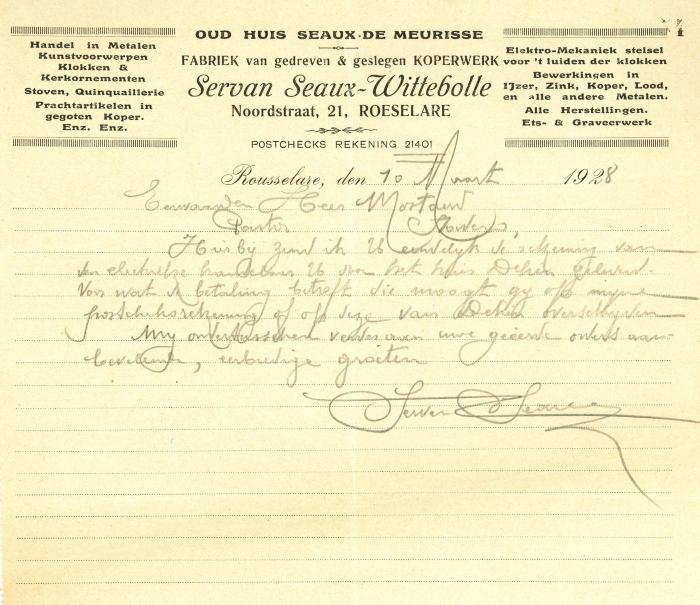 OUD HUIS SEAUX-DE MEURISSE
FABRIEK van gedreven & geslegen KOPERWERK
Servan Seaux-Wittebolle
Noordstraat, 21, ROESELARE
POSTCHECKS REKENING 21401
Handel in Metalen
Kunstvoorwerpen
Klokken &
Kerkornementen
Stoven, Quinquaillerie
Prachtartikelen in
gegoten Koper.
Enz. Enz.
Elektro-Mekaniek stelsel
voor 't luiden der klokken
Bewerkingen in
IJzer, Zink, Koper, Lood,
en alle andere Metalen.
Alle Herstellingen.
Ets- & Graveerwerk
Rousselare, den 10 Maart 1928
Eerwaarden Heer Mostaert
Pastor
Hierbij zend ik U eindelyk de van
den electrieke U door het huis Deken geleverd.
Voor wat de betaling betreft die moogt gy op myne
postchekrekening of op deze van Deken overschryven
My ondertusschen verder aan uwe geëerde orders aan-
bevelende, eerbiedige groeten
Servan Seaux